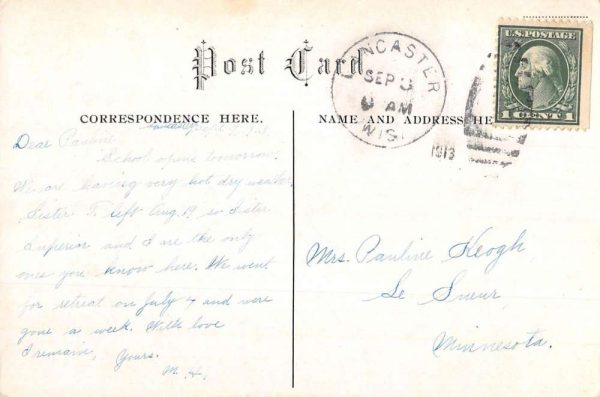 Post Card
CORRESPONDENCE HERE.
Dear Pauline,
School opens tomorrow.
We are having very hot dry weather,
Sister T. left Aug. 19 so Sister
Superior and I are the only
ones you know here. We went
for retreat on July 4 and were
gone a week. With love
I remain, Yours.
M. H.
NAME AND ADDRESS HE
NCASTER
SEP 3
AM
WIS.
1913
U.S. POSTAGE
1 CENT 1
Mrs. Pauline Keogh,
Le Sueur,
Minnesota.